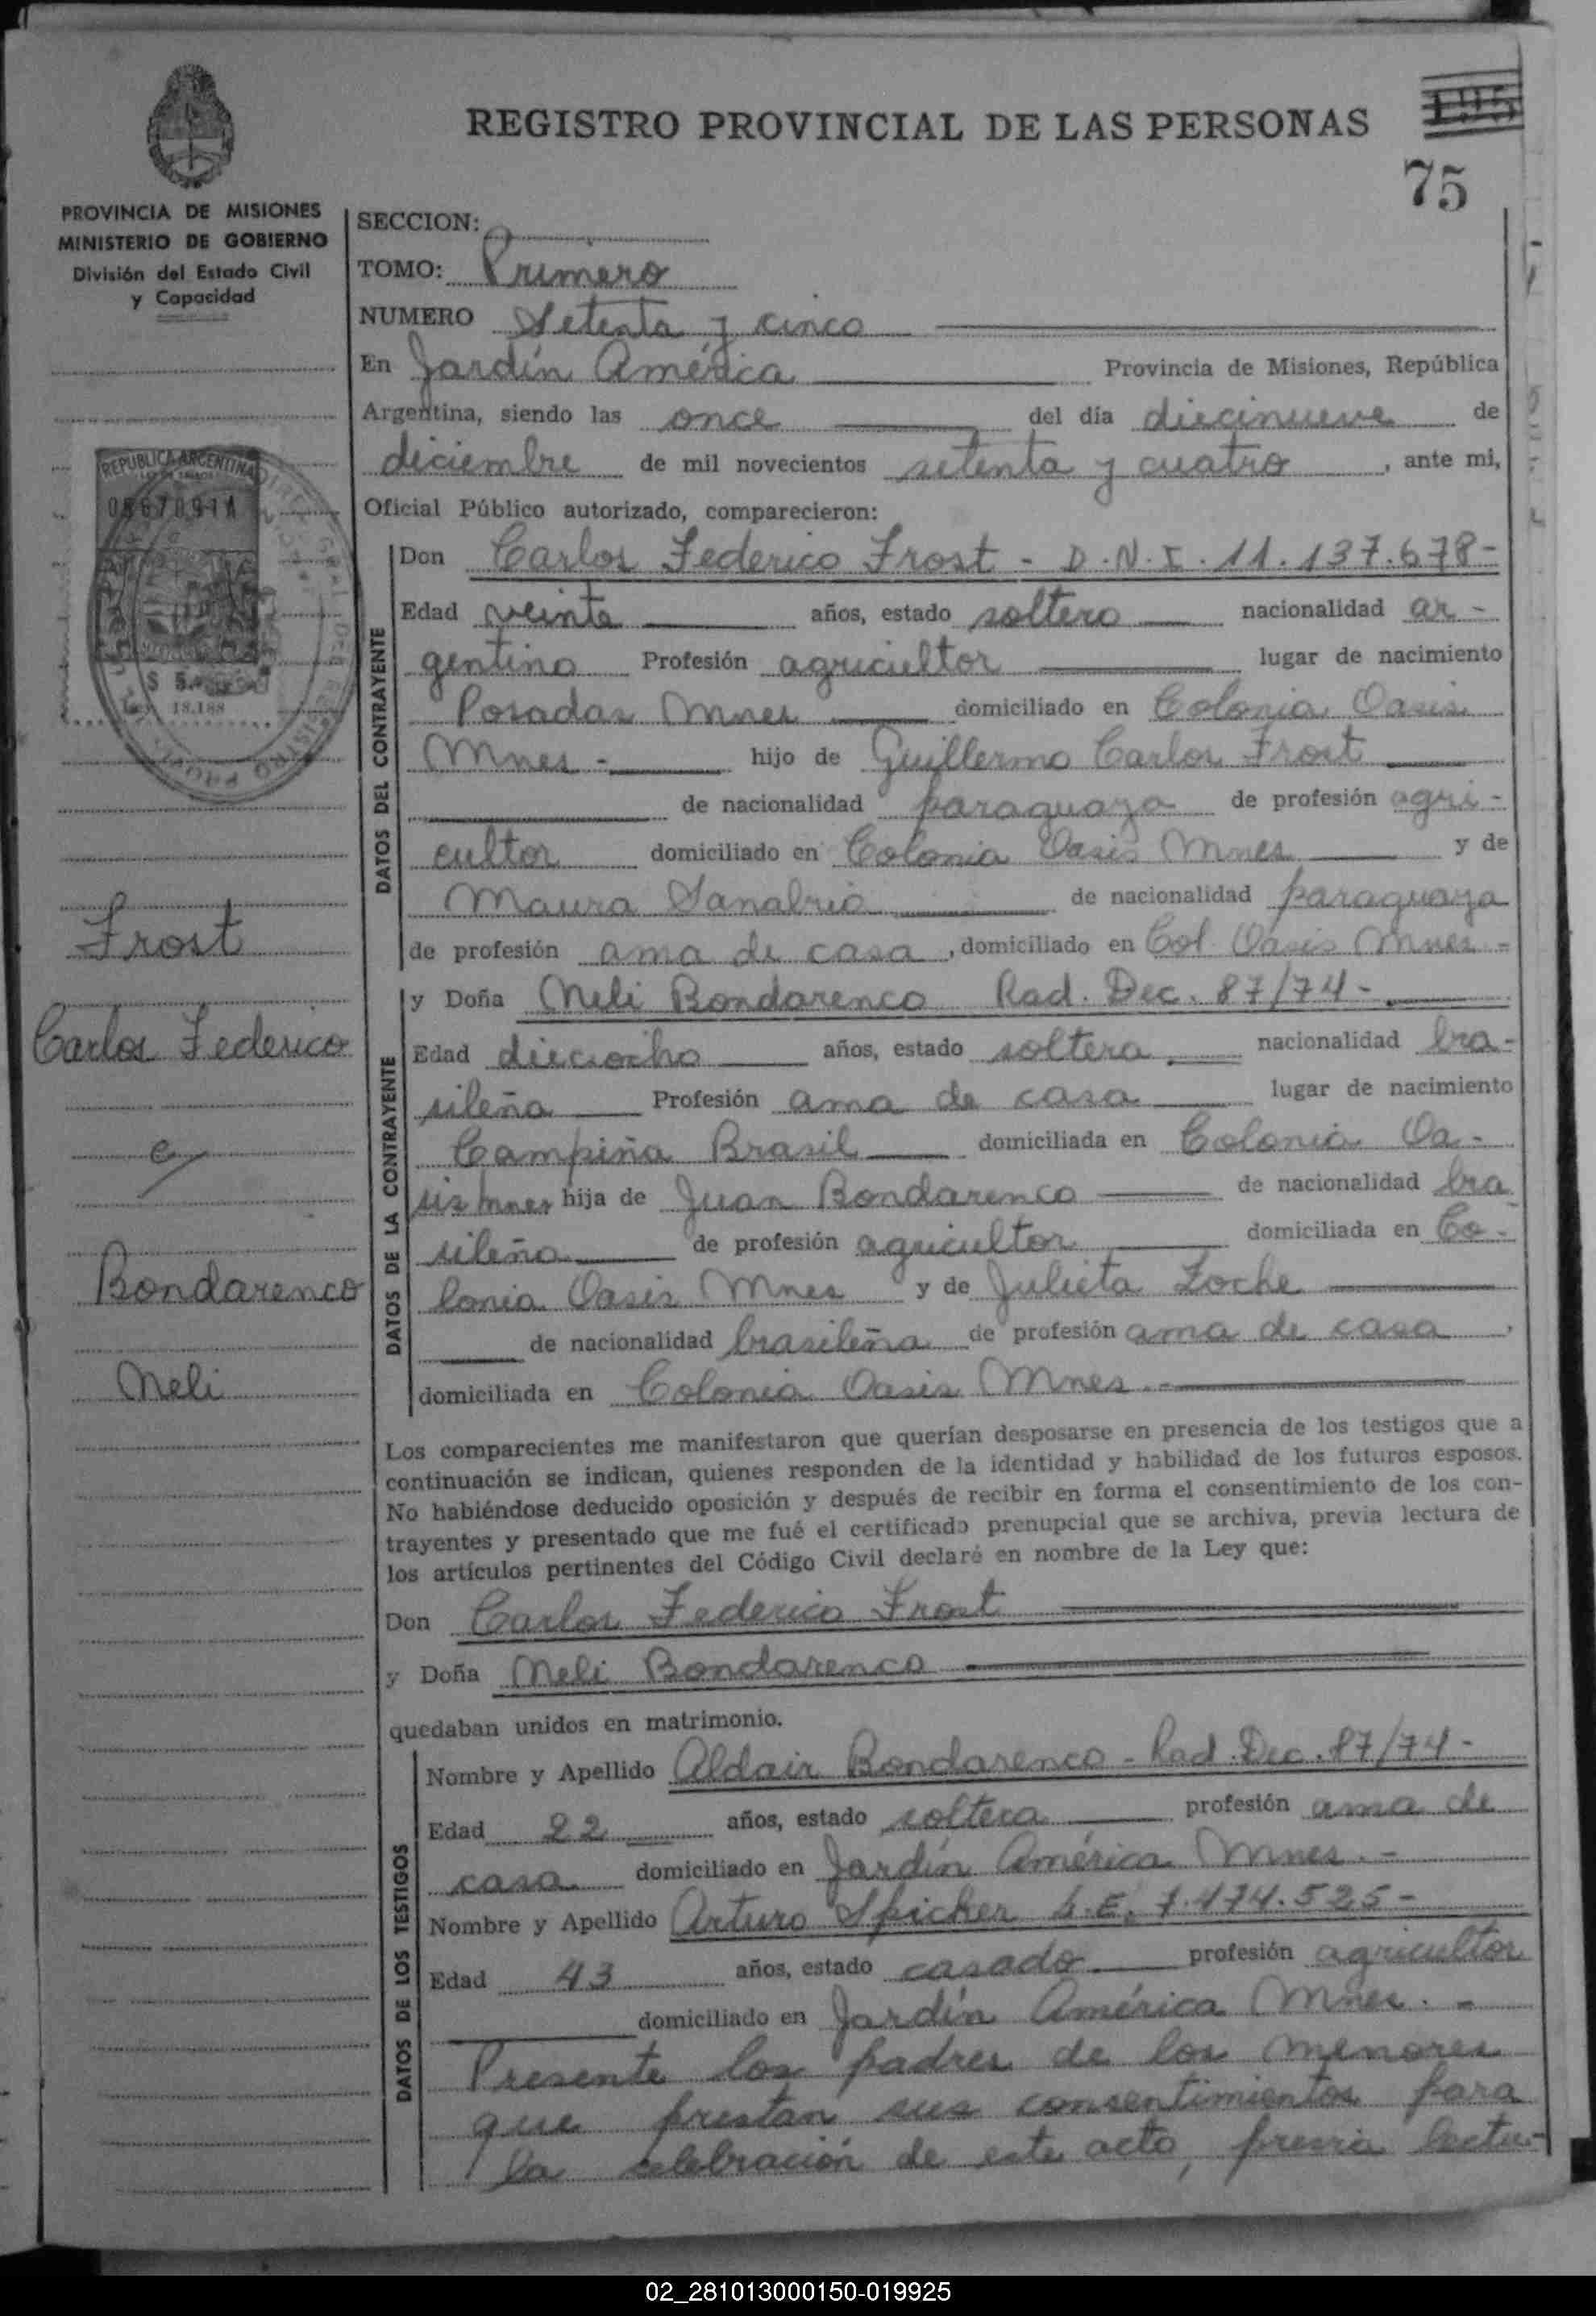 REGISTRO PROVINCIAL DE LAS PERSONAS
195
75
PROVINCIA DE MISIONES
MINISTERIO DE GOBIERNO
División del Estado Civil
y Capacidad
SECCION:
TOMO: Primero
NUMERO Setenta y cinco
En Jardín América Provincia de Misiones, República
Argentina, siendo las once del día diecinueve de
diciembre de mil novecientos setenta y cuatro, ante mi,
Oficial Público autorizado, comparecieron:
REPUBLICA ARGENTINA
$ 5.
18.188
Frost
Carlos Federico
y
Bondarenco
Meli
DATOS DEL CONTRAYENTE
Don Carlos Federico Frost - D.N.I. 11.137.678-
Edad veinte años, estado soltero nacionalidad ar-
gentino Profesión agricultor lugar de nacimiento
Posadas Mnes domiciliado en Colonia Oasis
Mnes.- hijo de Guillermo Carlos Frost
de nacionalidad paraguaya de profesión agri-
cultor domiciliado en Colonia Oasis Mnes y de
Maura Sanabria de nacionalidad paraguaya
de profesión ama de casa, domiciliado en Col. Oasis Mnes-
DATOS DE LA CONTRAYENTE
y Doña Meli Bondarenco Rad. Dec. 87/74-
Edad dieciocho años, estado soltera nacionalidad bra-
sileña Profesión ama de casa lugar de nacimiento
Campiña Brasil domiciliada en Colonia Oa-
sis Mnes hija de Juan Bondarenco de nacionalidad bra
sileña de profesión agricultor domiciliada en Co-
lonia Oasis Mnes y de Julieta Loche
de nacionalidad brasileña de profesión ama de casa,
domiciliada en Colonia Oasis Mnes.-
Los comparecientes me manifestaron que querían desposarse en presencia de los testigos que a
continuación se indican, quienes responden de la identidad y habilidad de los futuros esposos.
No habiéndose deducido oposición y después de recibir en forma el consentimiento de los con-
trayentes y presentado que me fué el certificado prenupcial que se archiva, previa lectura de
los artículos pertinentes del Código Civil declaré en nombre de la Ley que:
Don Carlos Federico Frost
y Doña Meli Bondarenco
quedaban unidos en matrimonio.
DATOS DE LOS TESTIGOS
Nombre y Apellido Aldair Bondarenco - Rad. Dec. 87/74-
Edad 22 años, estado soltera profesión ama de
casa domiciliado en Jardín América Mnes.-
Nombre y Apellido Arturo Spicher L.E. 7.474.525-
Edad 43 años, estado casado profesión agricultor
domiciliado en Jardín América Mnes.-
Presente los padres de los menores
que prestan sus consentimientos para
la celebración de este acto, previa lectu-
02_281013000150-019925